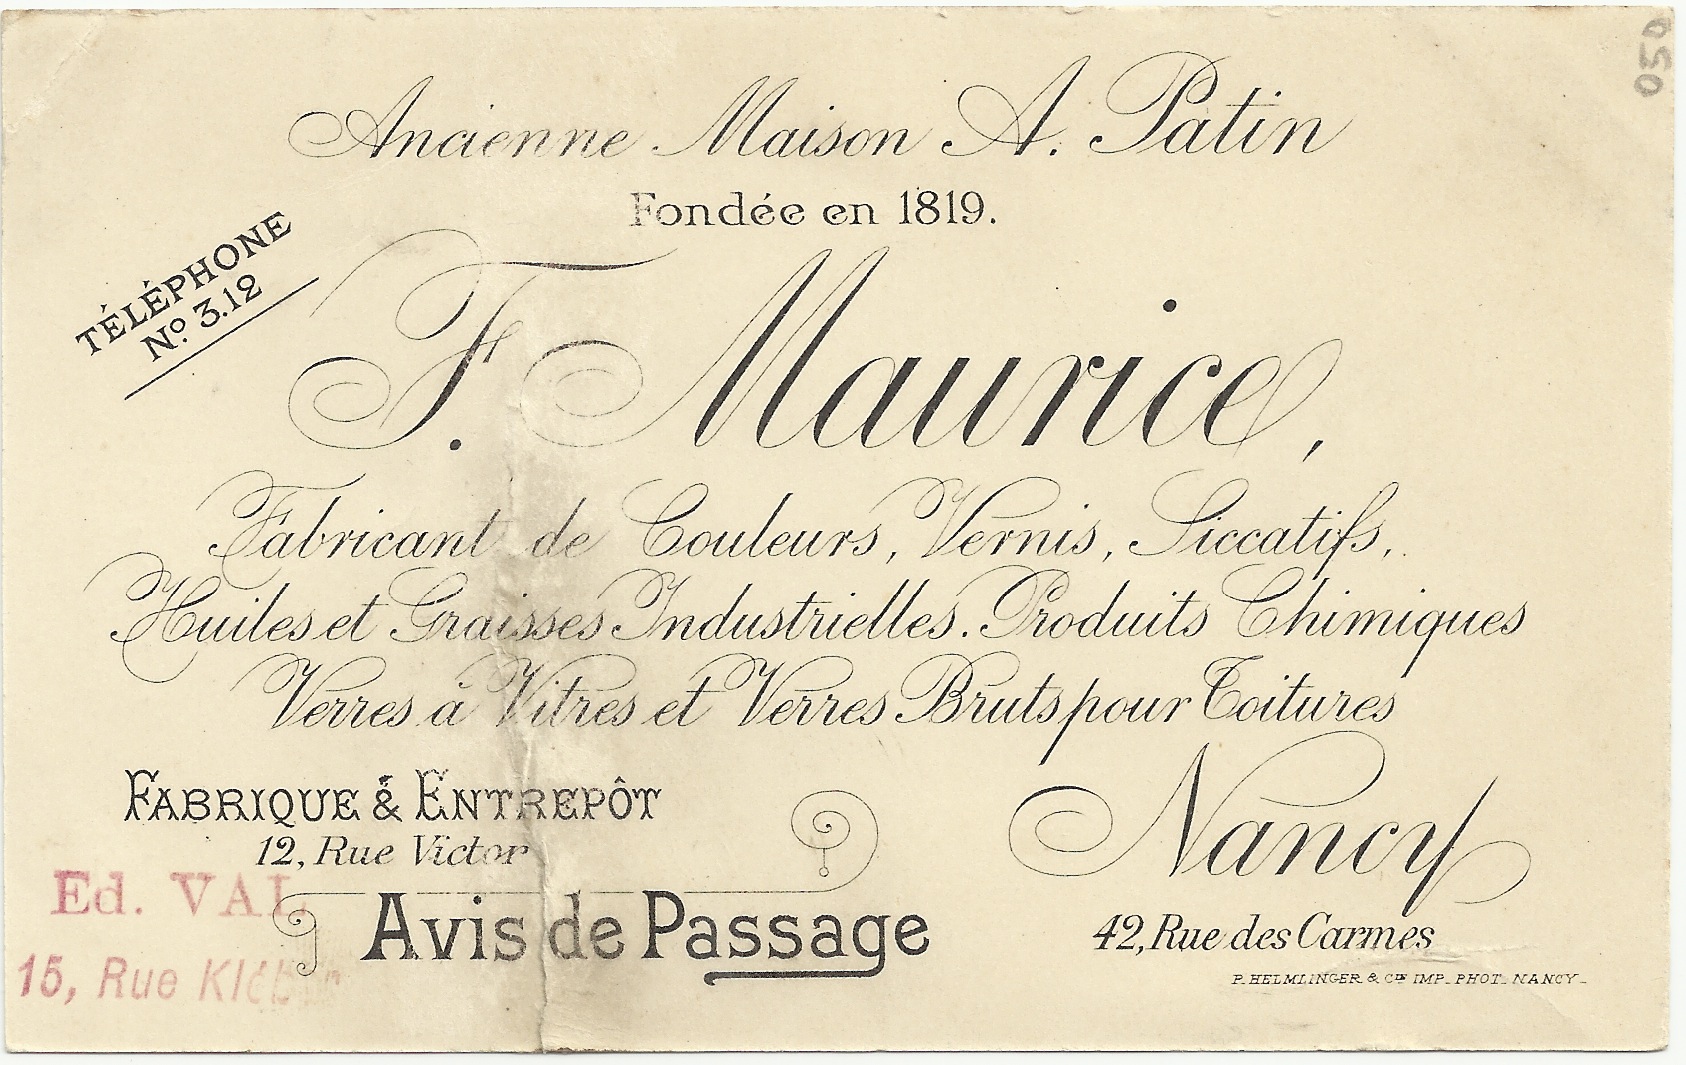 050
Ancienne Maison A. Patin
Fondée en 1819.
TÉLÉPHONE
No. 3.12
F. Maurice,
Fabricant de Couleurs, Vernis, Siccatifs,
Huiles et Graisses Industrielles. Produits Chimiques
Verres à Vitres et Verres Bruts pour Toitures
FABRIQUE & ENTREPÔT
12, Rue Victor
Nancy
42, Rue des Carmes
Ed. VAL
15, Rue
Avis de Passage
P. HELMLINGER & Cie IMP. PHOT. NANCY_